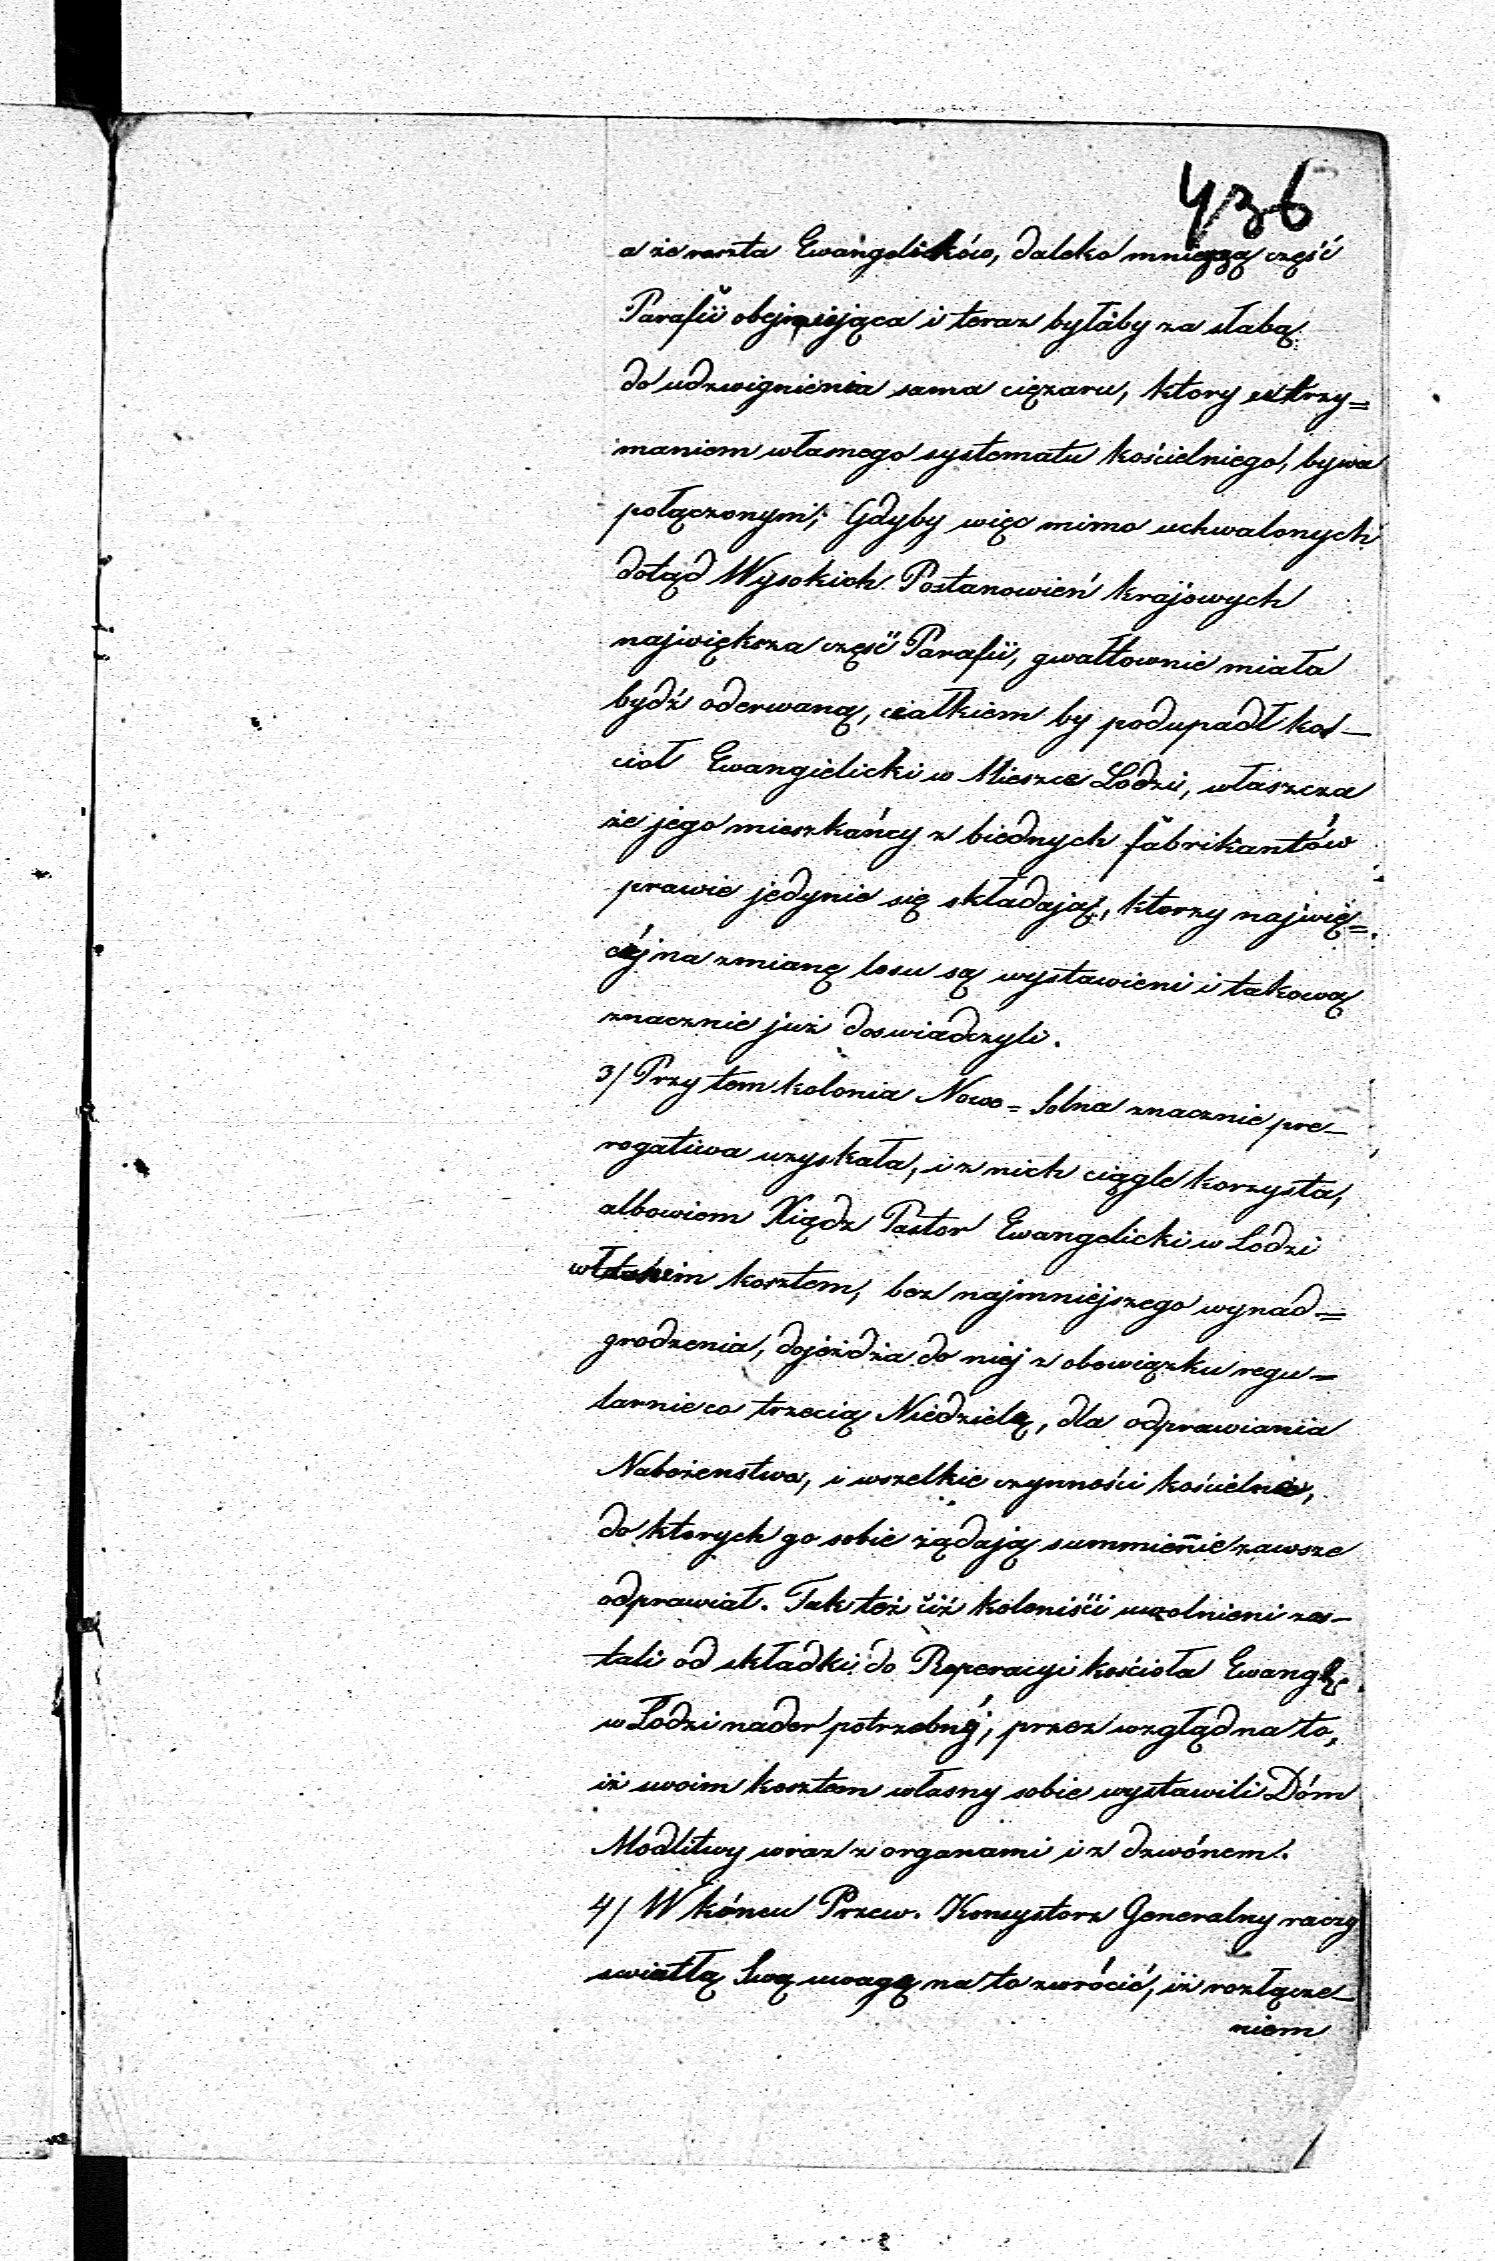 436
a że reszta Ewangelików, daleko mnieyszą część
Parafii obejmująca i teraz byłaby za słabą
do udzwignienia sama ciężaru, ktory z utrzy=
maniem własnego systematu kościelniego, bywa
połączonym; Gdyby więc mimo uchwalonych
dotąd Wysokich Postanowień krajowych
największa część Parafii, gwałtownie miała
bydź oderwaną, całkiem by podupadł koś–
ciół Ewangielicki w Mieszce Łodzi, właszcza
że jego mieszkańcy z biednych fabrikantów
prawie jedynie się składają, ktorzy najwię=
céj na zmianę losu są wystawieni i takową
znacznie już doswiadczyli.
3/ Przytem kolonia Nowo=Solna znacznie pre–
rogatiwa uzyskała, i z nich ciągle korzysta,
albowiem Xiądz Pastor Ewangelicki w Łodzi
własnem kosztem, bez najmniejszego wynad=
grodzenia, dojéżdża do niéj z obowiązku regu=
larnie co trzecią Niedzielę, dla odprawiania
Nabożenstwa, i wszelkie czynności kościelnie,
do ktorych go sobie żądają summiennie zawsze
odprawiał. Tak też ciż koloniści uwolnieni zos–
tali od składki do Reperacyi kościoła Ewangel.
w Łodzi nader potrzebnéj, przez wzgląd na to,
iż swoim kosztem własny sobie wystawili Dóm
Modlitwy wraz z organami i z dzwónem.
4/ W kóncu Przew. Konsystorz Generalny raczy
swiatłą Swą uwagę na to zwrócić, iż rozłącze–
niem